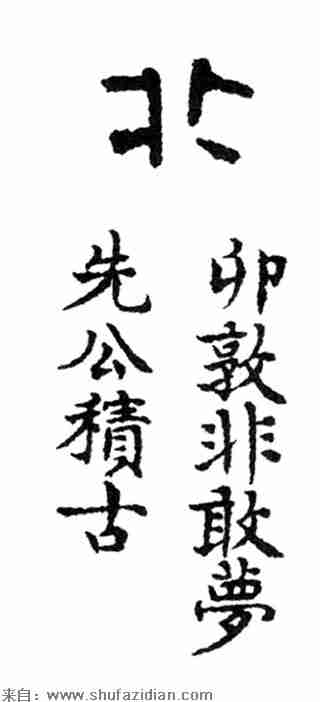 非
卯敦非敢夢
先公積古
来自：www.shufazidian.com